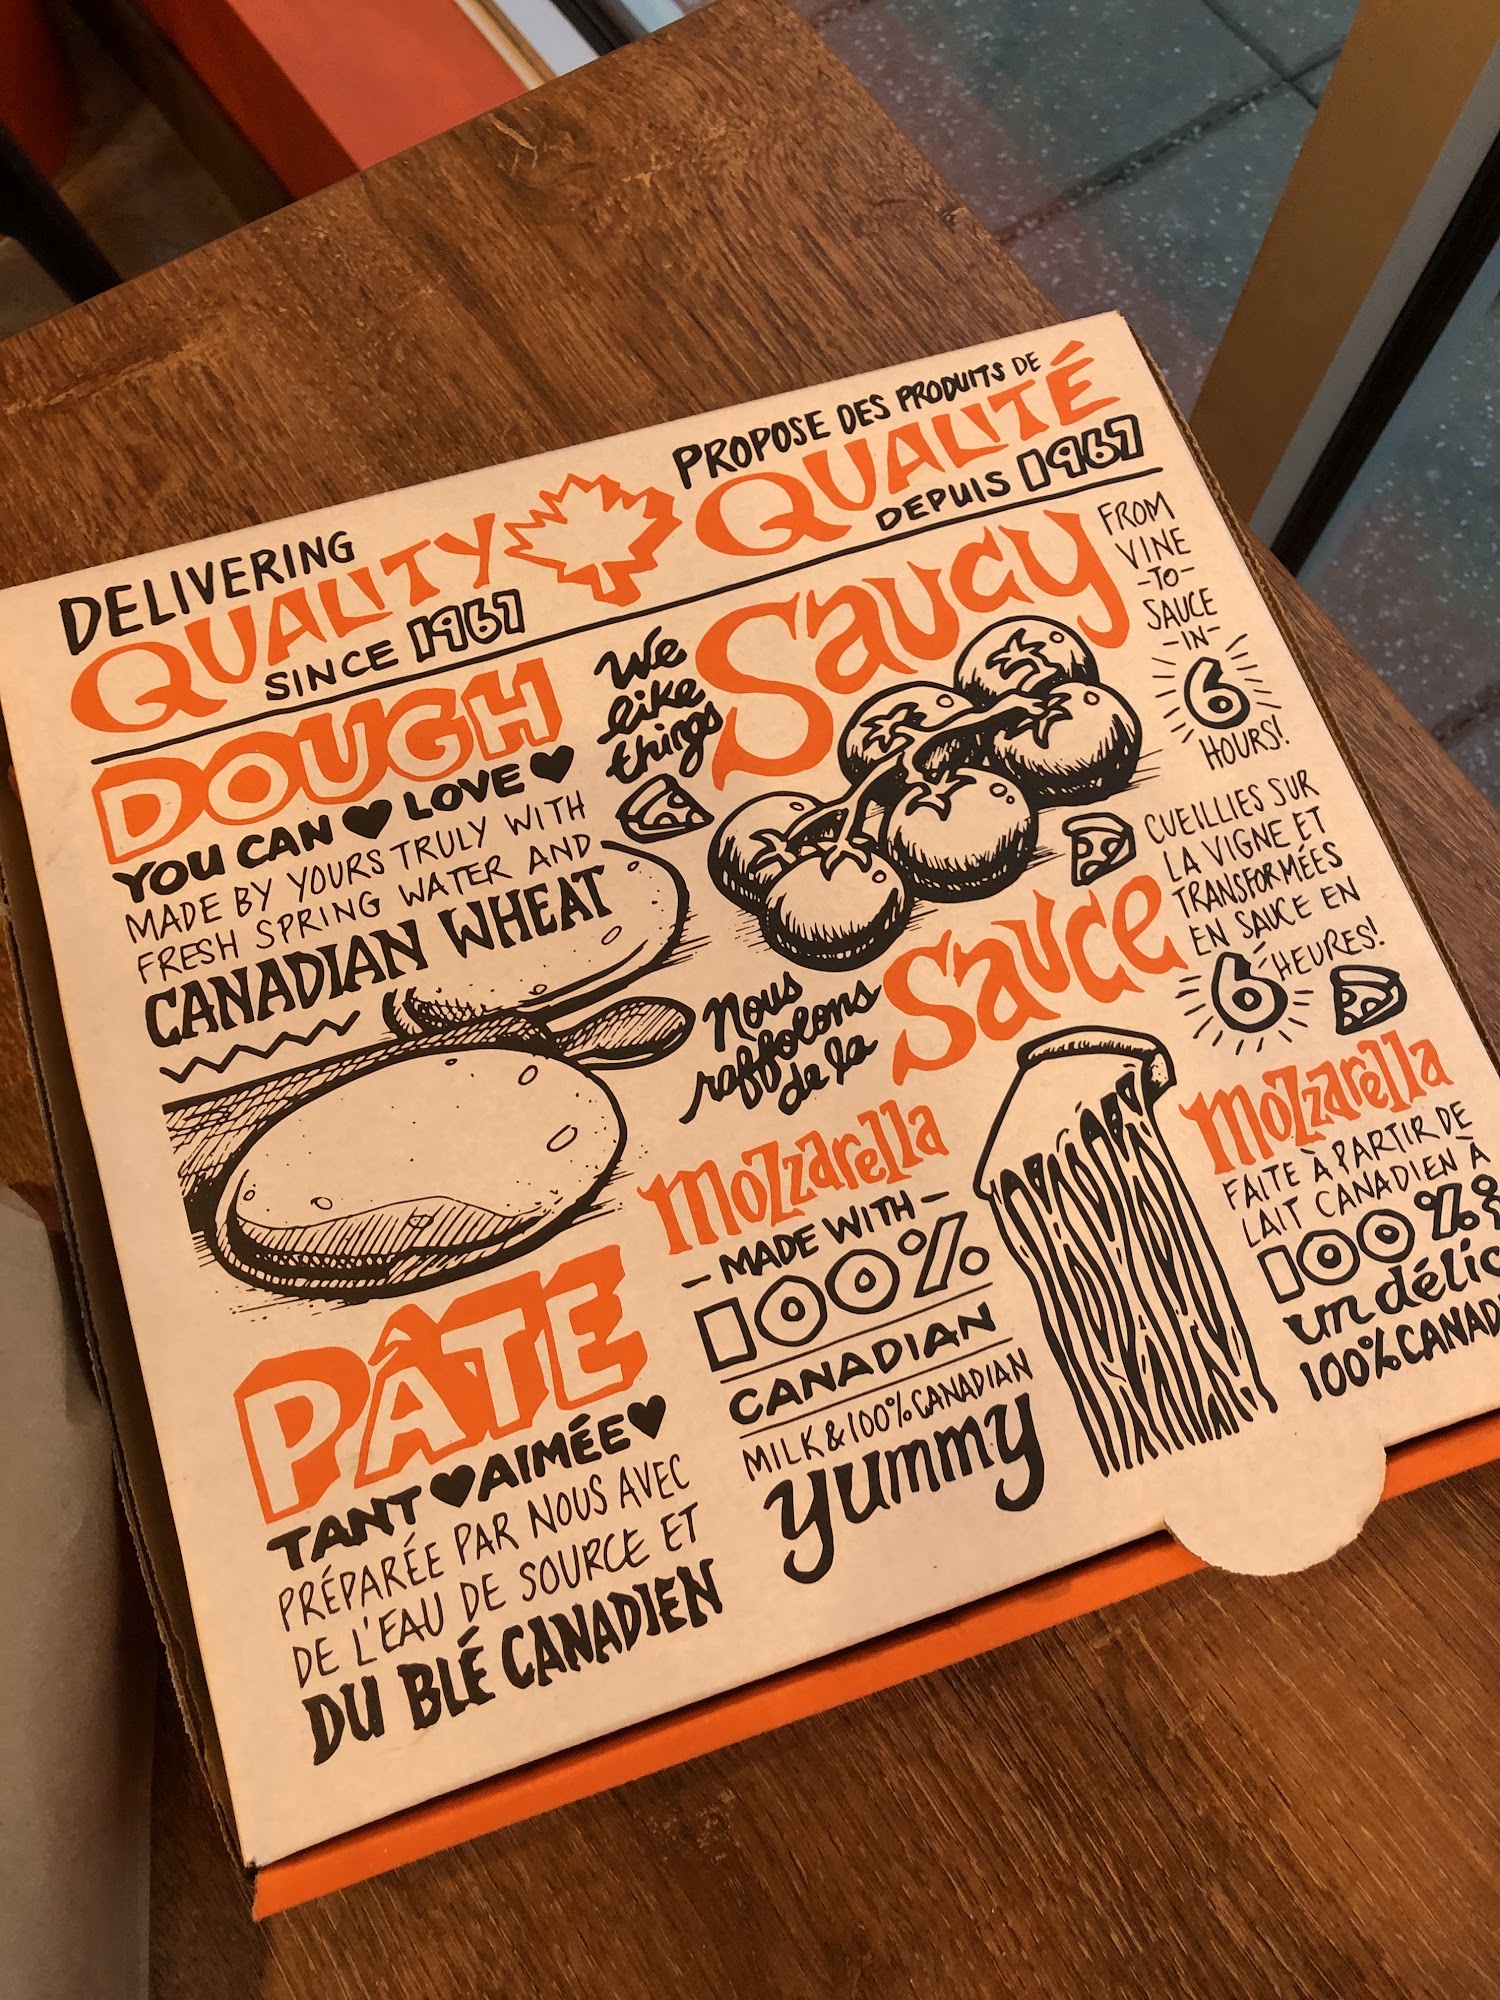 DELIVERING
QUALITY
SINCE 1967
PROPOSE DES PRODUITS DE
QUALITÉ
DEPUIS 1967
DOUGH
YOU CAN LOVE
MADE BY YOURS TRULY WITH
FRESH SPRING WATER AND
CANADIAN WHEAT
We
like
things
Saucy
FROM
VINE
-TO-
SAUCE
-IN-
6
HOURS!
CUEILLIES SUR
LA VIGNE ET
TRANSFORMÉES
EN SAUCE EN
6 HEURES!
Nous
raffolons
de la
Sauce
PÂTE
TANT AIMÉE
PRÉPARÉE PAR NOUS AVEC
DE L'EAU DE SOURCE ET
DU BLÉ CANADIEN
Mozzarella
- MADE WITH -
100%
CANADIAN
MILK & 100% CANADIAN
yummy
Mozzarella
FAITE À PARTIR DE
LAIT CANADIEN À
100%
un
100%